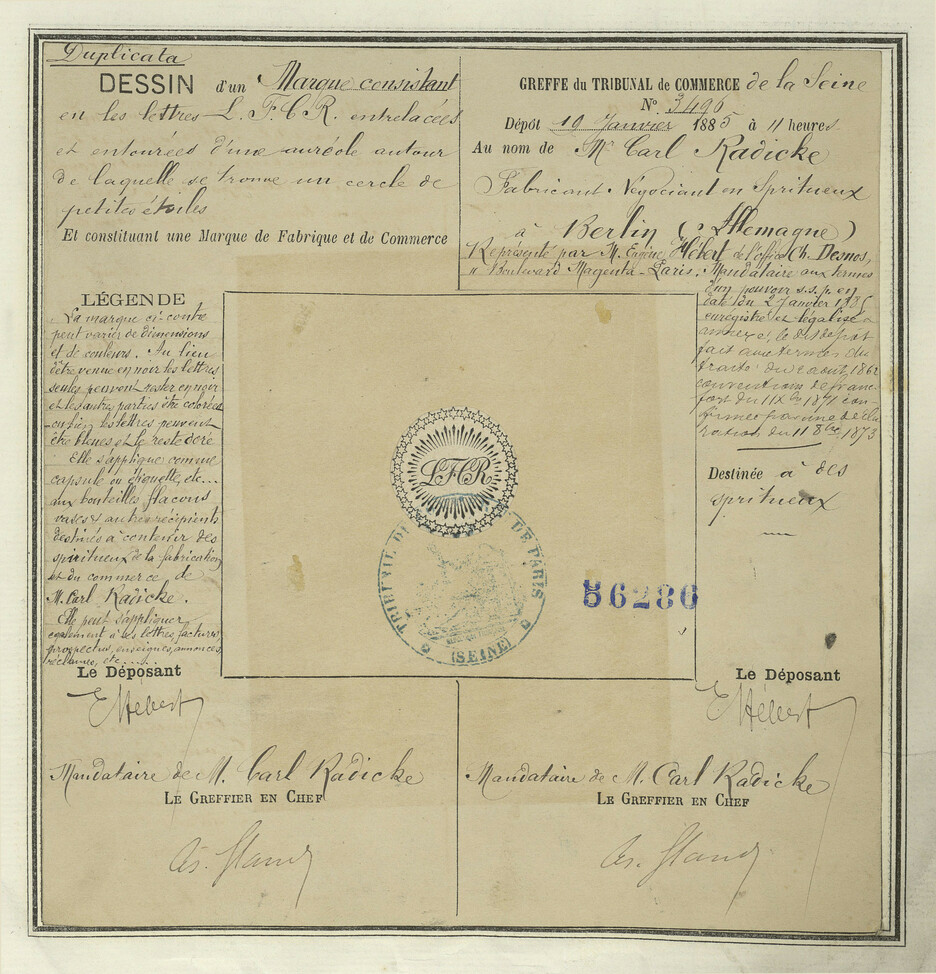 Duplicata
DESSIN d'un Marque consistant
en les lettres L. F. C R. entrelacées
et entourées d'une auréole autour
de laquelle se trouve un cercle de
petites étoiles
Et constituant une Marque de Fabrique et de Commerce
GREFFE du TRIBUNAL de COMMERCE de la Seine
N° 3496
Dépôt 19 Janvier 1885 à 11 heures
Au nom de Mr Carl Radicke
Fabricant Négociant en Spritueux
à Berlin (Allemagne)
Représenté par M. Eugène Hébert de l'office Ch. Desnos,
11 Boulevard Magenta-Paris. Mandataire aux termes
d'un pouvoir s.s.p. en
date du 2 Janvier 1885
enregistré et légalisé
annexé, le dit dépôt
fait aux termes du
traité du 2 août 1862
conventions de Franc-
fort du 11 Xbre 1871 con-
firmées par une décla-
ration du 11 8bre 1873
Destinée à des
spritueux
LÉGENDE
La marque ci-contre
peut varier de dimensions
et de couleurs. Au lieu
d'être venue en noir les lettres
seules peuvent rester en noir
et les autres parties être colorées
ou bien les lettres peuvent
être bleues et le reste doré
Elle s'applique comme
capsule ou étiquette, etc...
aux bouteilles flacons
vases & autres récipients
destinés à contenir des
spiritueux de la fabrication
et du commerce de
M. Carl Radicke.
Elle peut s'appliquer
également à ses lettres, factures,
prospectus, enseignes, annonces,
réclames, etc.....
LFCR
TRIBUNAL DE PARIS
(SEINE)
56286
Le Déposant
EHébert
Mandataire de M. Carl Radicke
LE GREFFIER EN CHEF
Le Déposant
EHébert
Mandataire de M. Carl Radicke
LE GREFFIER EN CHEF